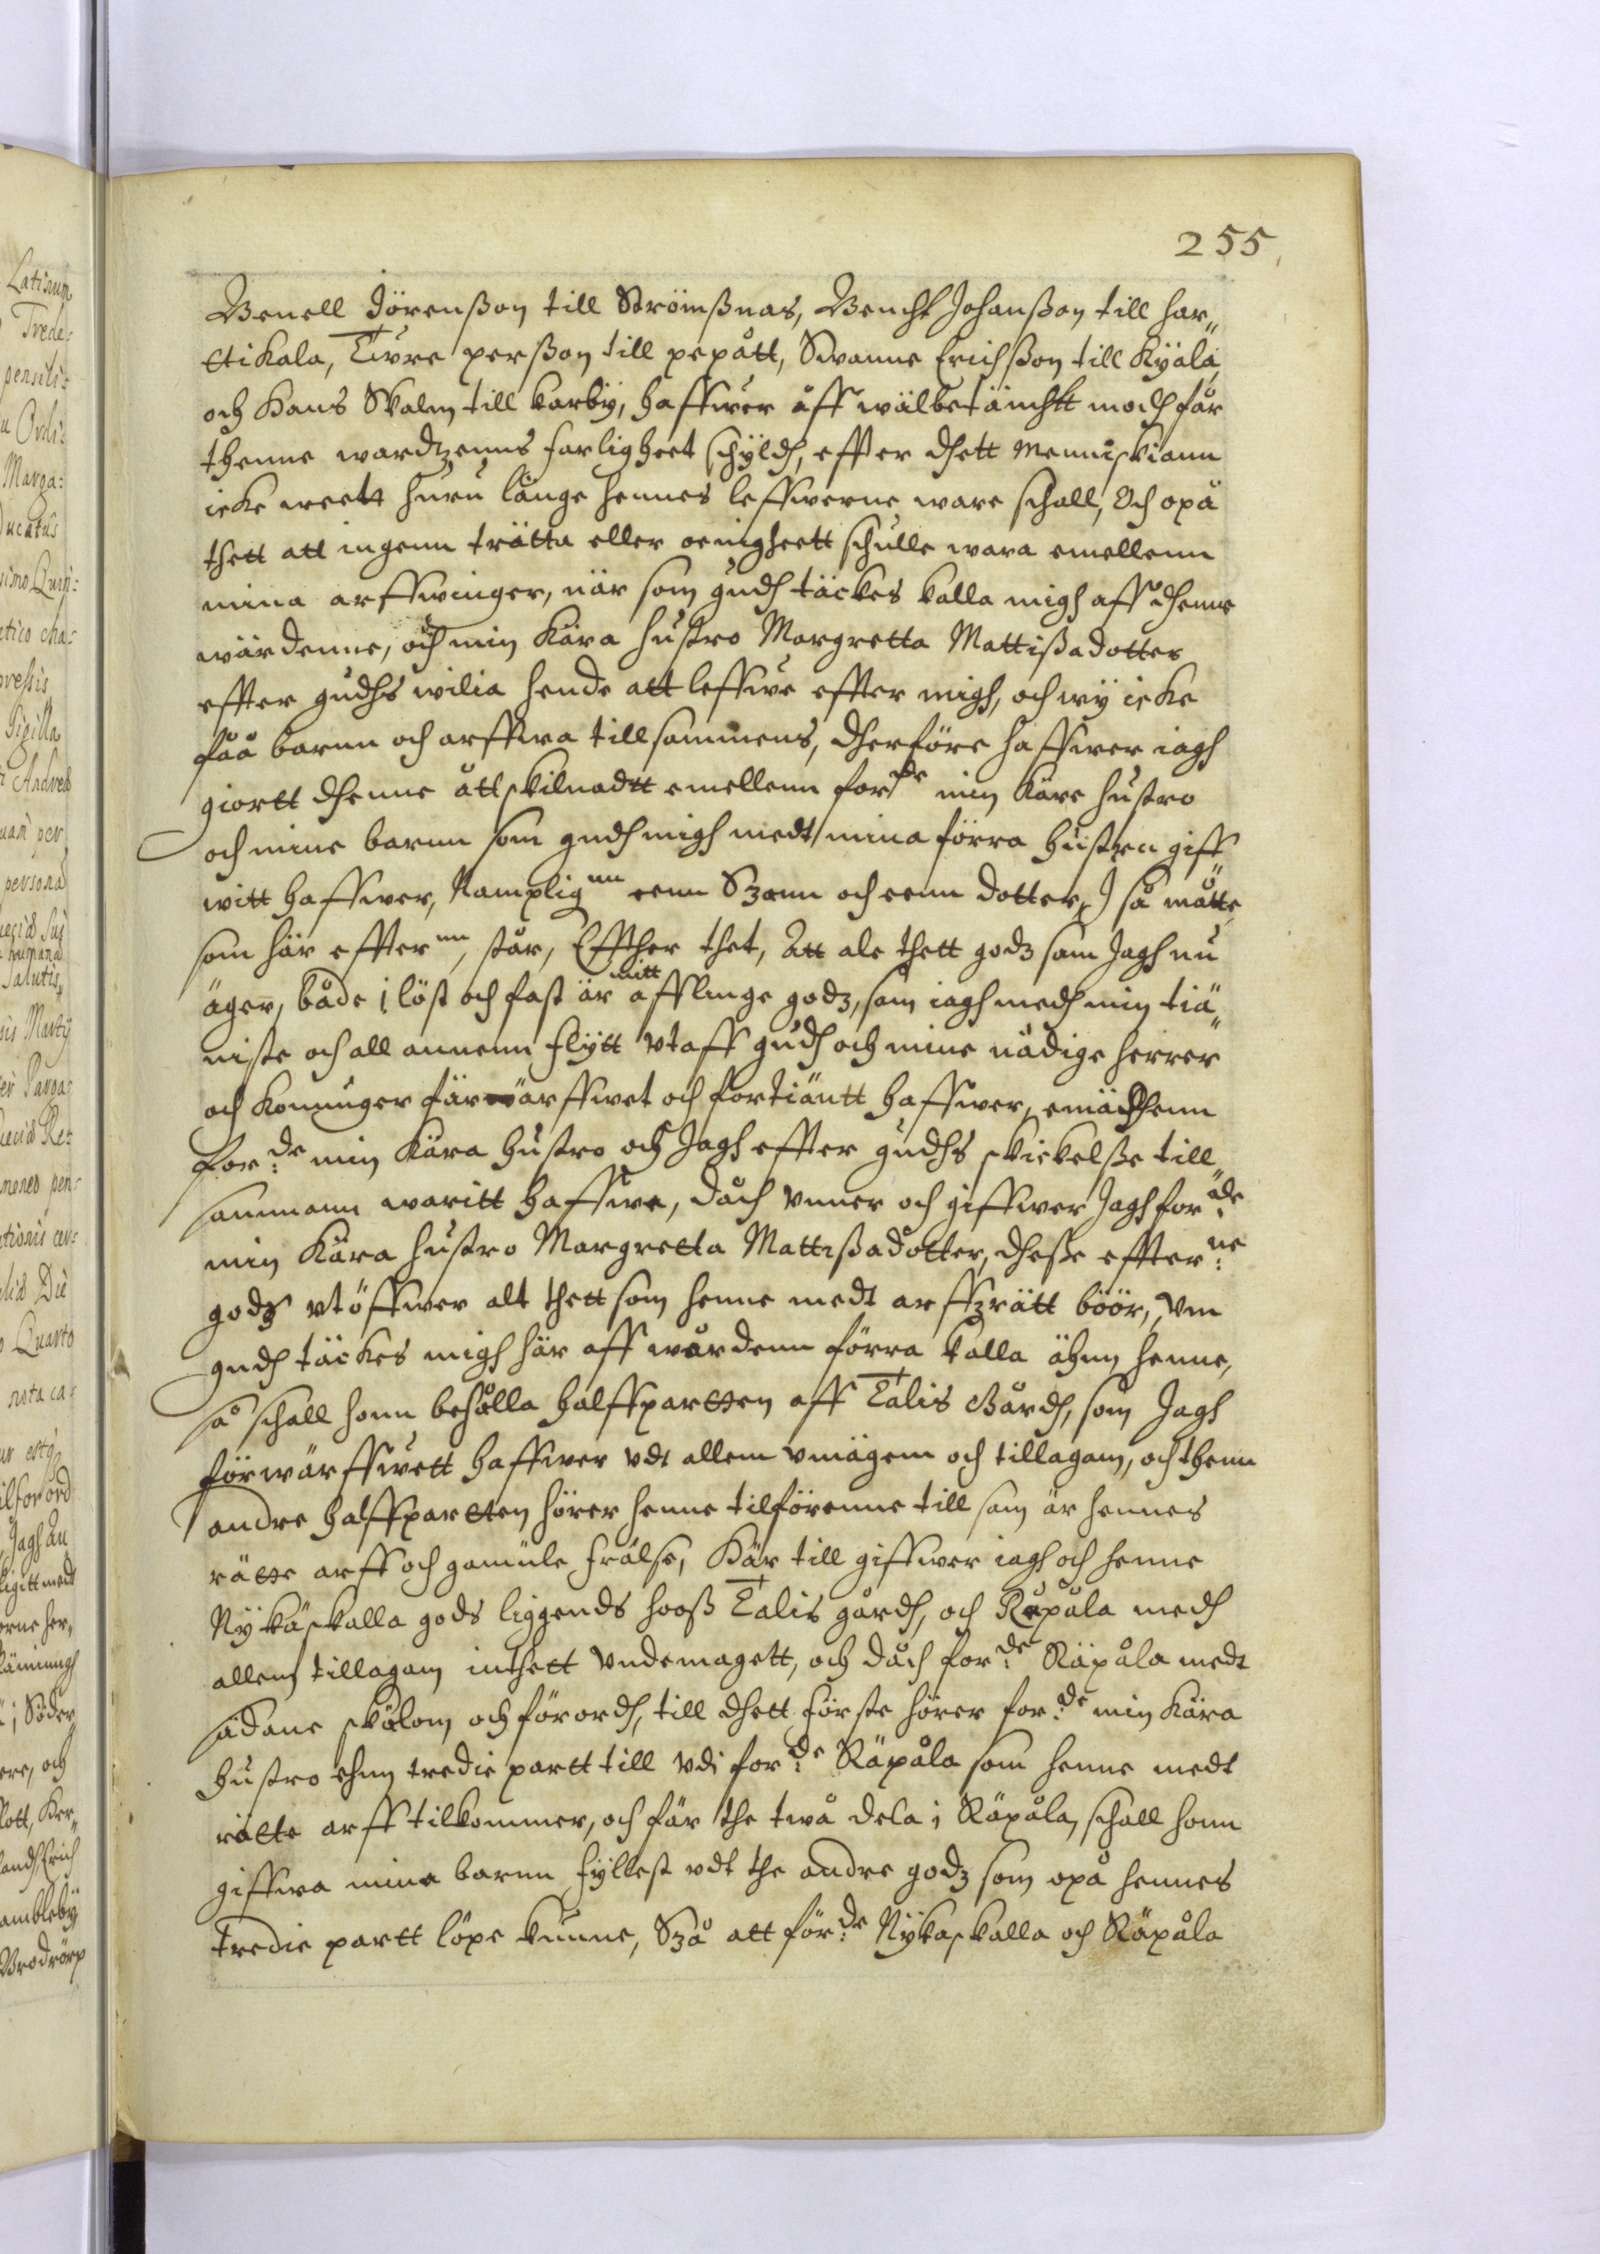 255
Benell Jörenßon till Strömßnas, Bencht Johanßon till har„
ckikala, Twre perßon till pepått, Swanne Erichßon till Kyäla
och Hans Skalm till karby, haffwer aff wälbetäncktt modh får
thenne wardtzenns farligheet schyldh, effter dhett menniskiann
icke weett huru länge hennes leffwerne ware schall, Och opå
thett att ingenn trätta eller oenigheett schulle wara emellenn
mina arffwinger, när som gudh täckes kalla migh aff dhenne
wärdenne, och min Kära hustro Margretta Mattißadotter
effter gudhs wilia hende att leffwe effter migh, och wy icke
fåå barnn och arffwa tillsammens, dherföre haffwer iagh
giortt dhenne åttskilnadtt emellenn for:de min Käre hustro
och mine barnn som gudh migh medt mina förra hustru giff„
witt haffwer, Namplignn eenn Szonn och eenn dotter, I så måtte
som här effternn, står, Effther thet, Att ale thett godz som Jagh nu
äger, både i löst och fast är mitt afflinge godz, som iagh medh min tiä„
niste och all annenn flytt vtaff gudh och mine nådige herrer
och Konunger färwärffwet och fortiäntt haffwer, emädhenn
for:de min Kära hustro och Jagh effter gudhs skickelße till„
sammann waritt haffwe, dåch vnner och giffwer Jagh for:de
min Kära hustro Margretta Mattißadotter, dheße effter:ne
godz vtöffwer alt thett som henne medt arffzrätt böör, Vm
gudh täckes migh här aff wårdenn förra kalla ähnn henne,
så schall honn behålla halffpartten aff Talis Gårdh, som Jagh
förwärffwett haffwer vdt allem vmägem och tillagam, och thenn
andre halffpartten hörer henne tilförenne till som är hennes
rätte arff och gamule frälse, Här till giffwer iagh och henne
Nykäskalla gods liggends hooß Talis gårdh, och Räpåla medh
allem tillagam inthett vndemagett, och dåch for:de Räpåla medt
sådane skälom och förordh, till dhett förste hörer for:de min Kära
hustro ehnn tredie partt till vdi for:de Räpåla som henne medt
rätte arff tilkommer, och får the twå dela i Räpåla, schall honn
giffwa mine barnn fyllest vdt the andre godz som opå hennes
tredie partt löpe kunne, Szå att för:de Nykaskalla och Räpåla